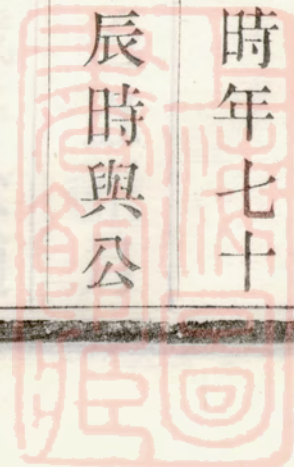 時年七十
辰時與公